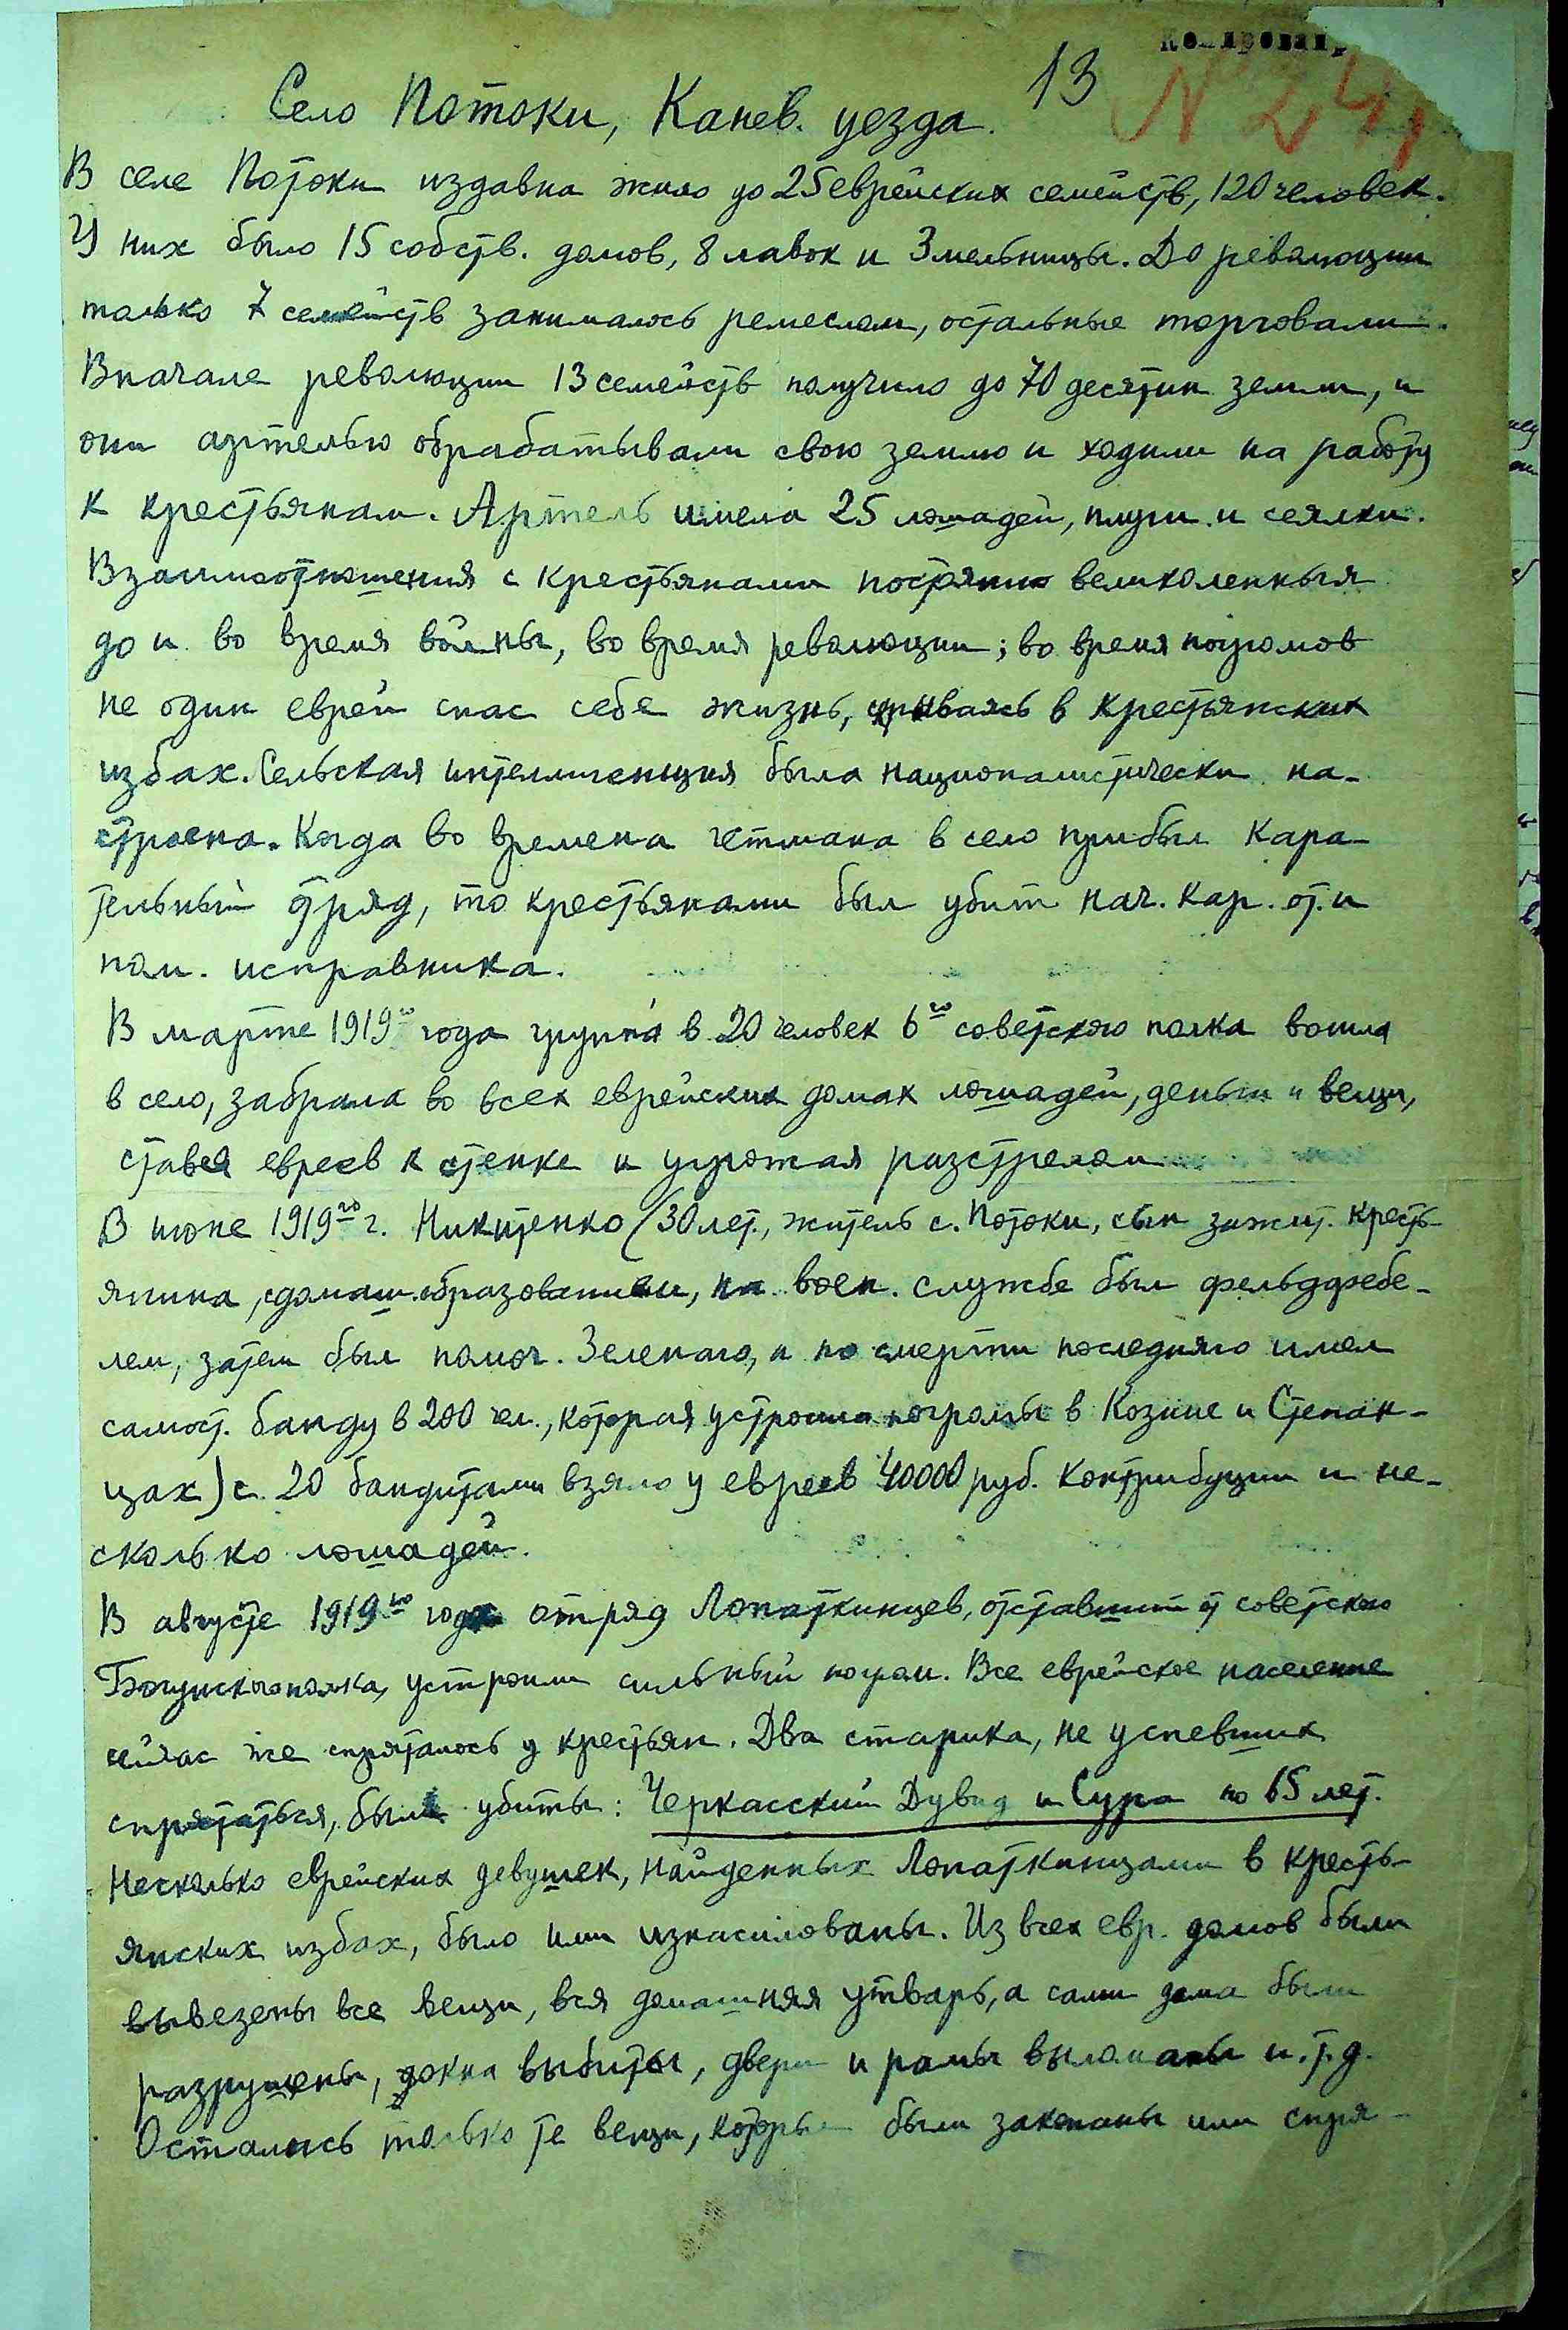 13
N 24,
Село Потоки, Канев. уезда.
В селе Потоки издавна жило до 25 еврейских семейств, 120 человек.
У них было 15 собств. домов, 8 лавок и 3 мельницы. До революции
только 7 семейств занималось ремеслом, остальные торговали.
Вначале революции 13 семейств получило до 70 десятин земли, и
они артелью обрабатывали свою землю и ходили на работу
к крестьянам. Артель имела 25 лошадей, плуги и сеялки.
Взаимоотношения с крестьянами постоянно великоленныя
до и во время войны, во время революции; во время погромов
не один еврей спас себе жизнь, скрываясь в крестьянских
избах. Сельская интеллигенция была националистически на-
строена. Когда во времена гетмана в село прибыл кара-
тельный отряд, то крестьянами был убит нач. кар. от. и
пом. исправника.
В марте 1919го года группа в 20 человек 6го советского полка вошла
в село, забрала во всех еврейских домах лошадей, деньги и вещи,
ставя евреев к стенке и угрожая разстрелом
В июне 1919го г. Никитенко (30 лет, житель с. Потоки, сын зажит. кресть-
янина, с домаш. образованием, на воен. службе был фельдфебе-
лем, затем был помощ. Зеленаго, и по смерти последняго имел
самост. банду в 200 чел., которая устроила погромы в Козине и Степан-
цах) с 20 бандитами взяло у евреев 40000 руб. контрибуции и не-
сколько лошадей.
В августе 1919го года отряд Лопаткинцев, отставший от советскаго
Богунского полка, устроили сильный погром. Все еврейское население
сейчас же спряталось у крестьян. Два старика, не успевших
спрятаться, были убиты: Черкасский Дувид и Сура по 65 лет.
Несколько еврейских девушек, найденных Лопаткинцами в кресть-
янских избах, было ими изнасилованы. Из всех евр. домов были
вывезены все вещи, вся домашняя утварь, а сами дома были
разрушены, окна выбиты, двери и рамы выломаны и. т. д.
Остались только те вещи, которые были закопаны или спря-